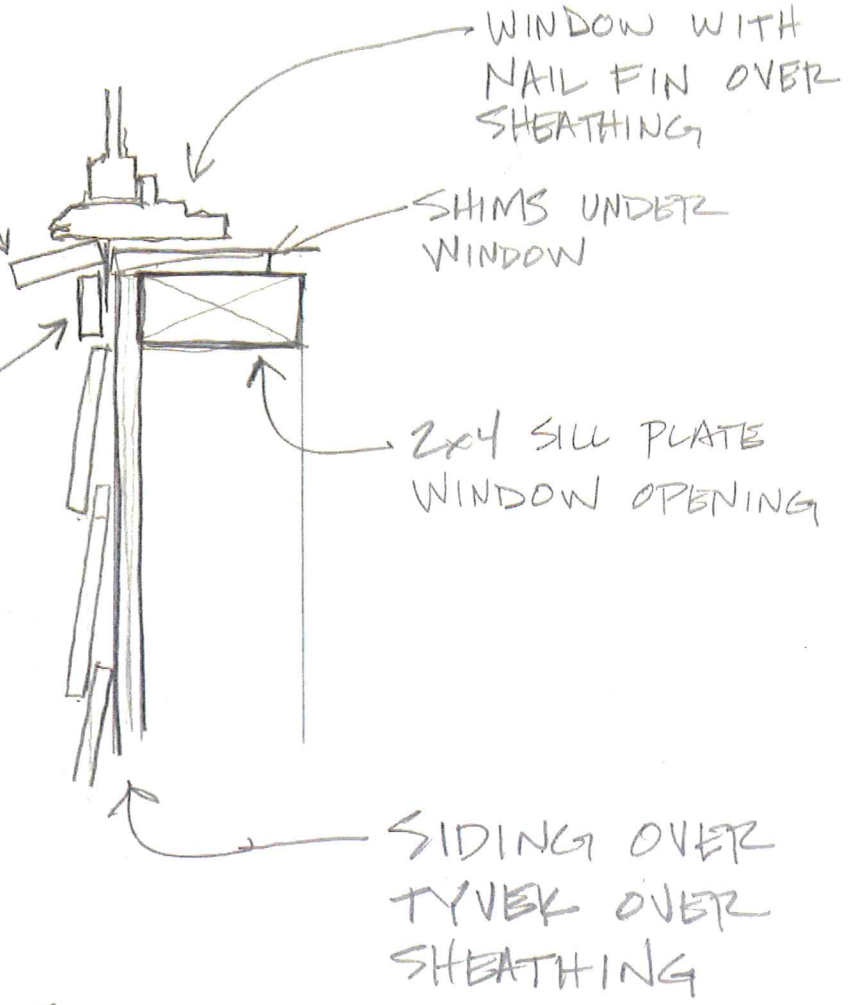 WINDOW WITH
NAIL FIN OVER
SHEATHING
SHIMS UNDER
WINDOW
2x4 SILL PLATE
WINDOW OPENING
SIDING OVER
TYVEK OVER
SHEATHING